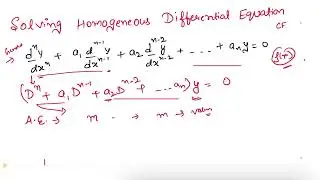 Solving Homogeneous Differential Equation
CF
d^n y/dx^n + a₁ d^(n-1) y/dx^(n-1) + a₂ d^(n-2) y/dx^(n-2) + - - - + aₙ y = 0
(D^n + a₁ D^(n-1) + a₂ D^(n-2) + - - - aₙ) y = 0
A.E. → m - → m → values